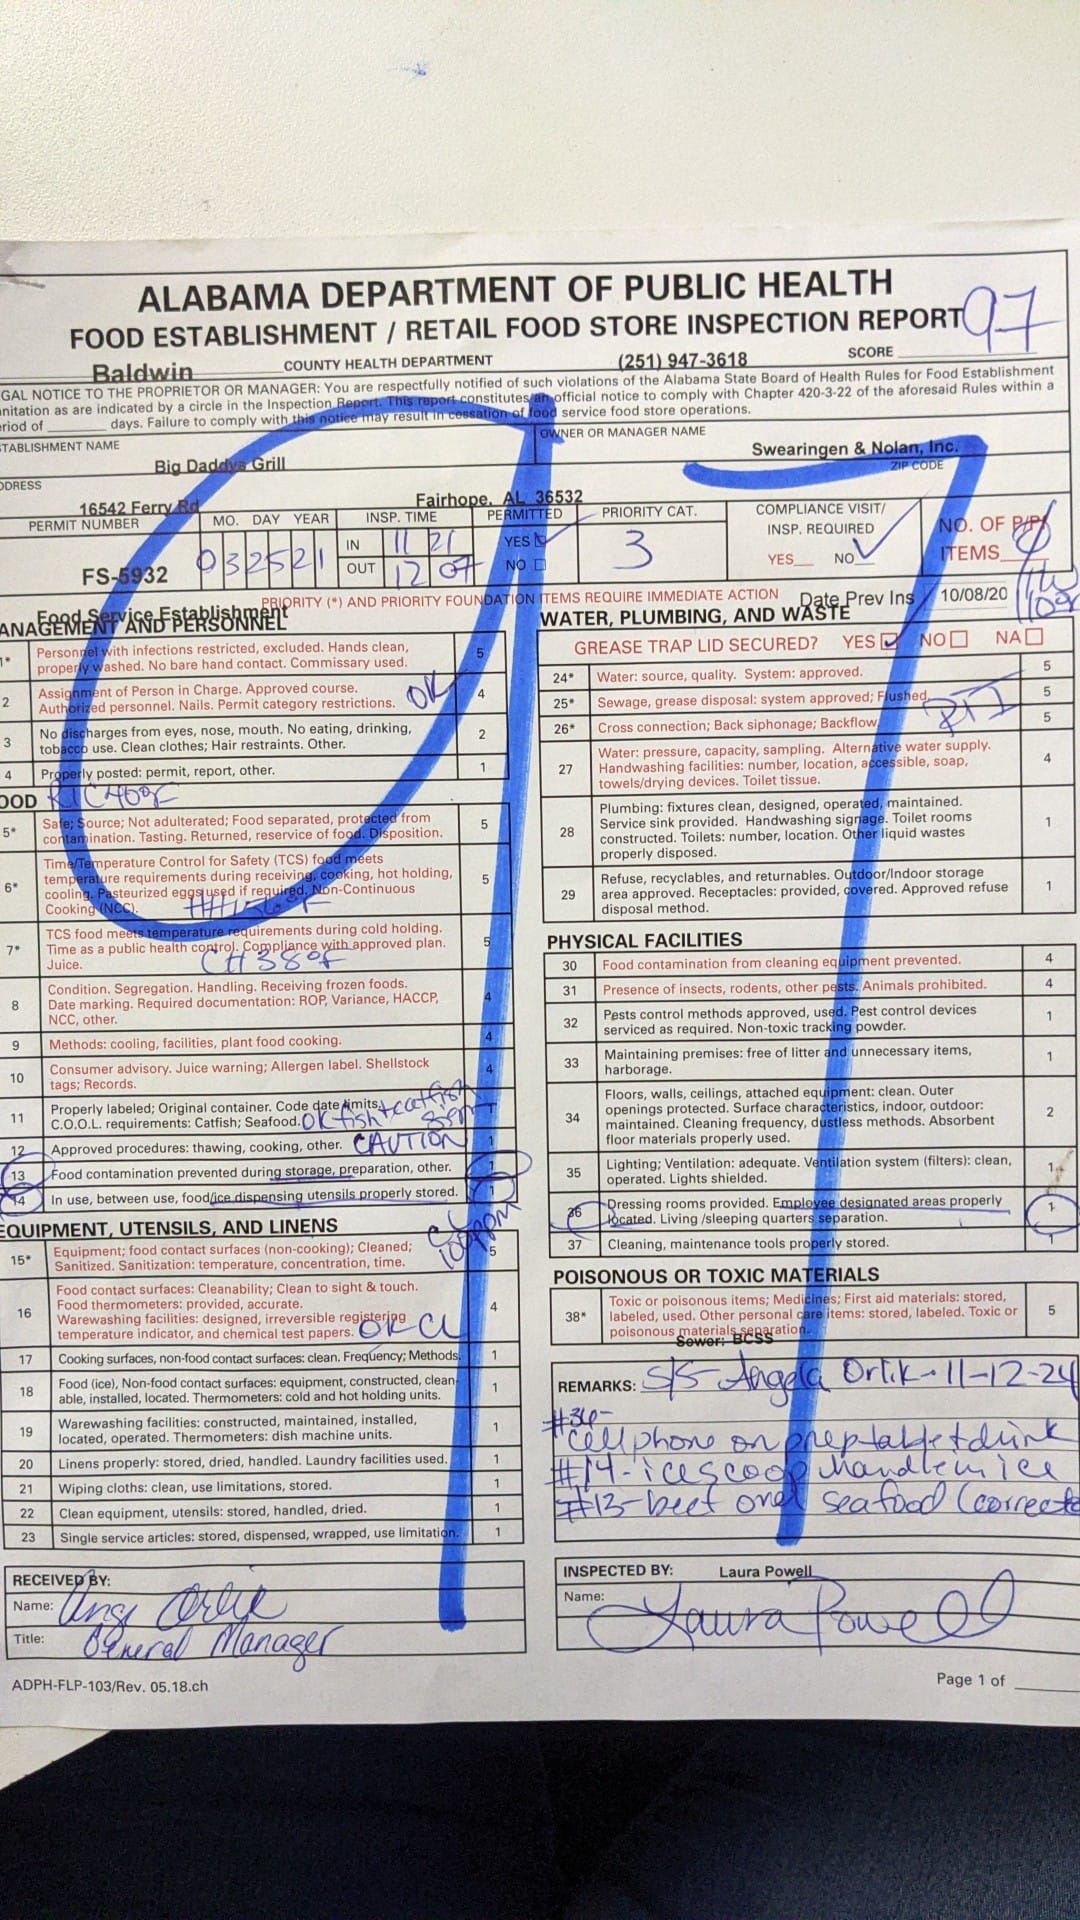 ALABAMA DEPARTMENT OF PUBLIC HEALTH
FOOD ESTABLISHMENT / RETAIL FOOD STORE INSPECTION REPORT
97
Baldwin COUNTY HEALTH DEPARTMENT (251) 947-3618 SCORE 97
GAL NOTICE TO THE PROPRIETOR OR MANAGER: You are respectfully notified of such violations of the Alabama State Board of Health Rules for Food Establishment
nitation as are indicated by a circle in the Inspection Report. This report constitutes an official notice to comply with Chapter 420-3-22 of the aforesaid Rules within a
eriod of ______ days. Failure to comply with this notice may result in cessation of food service food store operations.
STABLISHMENT NAME
Big Daddys Grill
OWNER OR MANAGER NAME
Swearingen & Nolan, Inc.
DDRESS
16542 Ferry Rd
Fairhope, AL 36532
ZIP CODE
PERMIT NUMBER
FS-5932
MO. DAY YEAR
032521
INSP. TIME
IN 11 21
OUT 12 07
PERMITTED
YES
NO
PRIORITY CAT.
3
COMPLIANCE VISIT/
INSP. REQUIRED
YES NO
NO. OF P/Pf
ITEMS
PRIORITY (*) AND PRIORITY FOUNDATION ITEMS REQUIRE IMMEDIATE ACTION
Date Prev Ins 10/08/20
Food Service Establishment
ANAGEMENT AND PERSONNEL
1* Personnel with infections restricted, excluded. Hands clean, 5
properly washed. No bare hand contact. Commissary used.
2 Assignment of Person in Charge. Approved course. OK 4
Authorized personnel. Nails. Permit category restrictions.
3 No discharges from eyes, nose, mouth. No eating, drinking, 2
tobacco use. Clean clothes; Hair restraints. Other.
4 Properly posted: permit, report, other. 1
OOD RIC40°F
5* Safe; Source; Not adulterated; Food separated, protected from 5
contamination. Tasting. Returned, reservice of food. Disposition.
6* Time/Temperature Control for Safety (TCS) food meets 5
temperature requirements during receiving, cooking, hot holding,
cooling. Pasteurized eggs used if required. Non-Continuous
Cooking (NCC).
7* TCS food meets temperature requirements during cold holding. 5
Time as a public health control. Compliance with approved plan.
Juice. CH38°F
8 Condition. Segregation. Handling. Receiving frozen foods. 4
Date marking. Required documentation: ROP, Variance, HACCP,
NCC, other.
9 Methods: cooling, facilities, plant food cooking. 4
10 Consumer advisory. Juice warning; Allergen label. Shellstock 4
tags; Records.
11 Properly labeled; Original container. Code date limits. 1
C.O.O.L. requirements: Catfish; Seafood. OK fish + catfish sign
12 Approved procedures: thawing, cooking, other. CAUTION 1
13 Food contamination prevented during storage, preparation, other. 1
14 In use, between use, food/ice dispensing utensils properly stored. 1
EQUIPMENT, UTENSILS, AND LINENS
CL 100ppm
15* Equipment; food contact surfaces (non-cooking); Cleaned; 5
Sanitized. Sanitization: temperature, concentration, time.
16 Food contact surfaces: Cleanability; Clean to sight & touch. 4
Food thermometers: provided, accurate.
Warewashing facilities: designed, irreversible registering
temperature indicator, and chemical test papers. OK CL
17 Cooking surfaces, non-food contact surfaces: clean. Frequency; Methods. 1
18 Food (ice), Non-food contact surfaces: equipment, constructed, clean- 1
able, installed, located. Thermometers: cold and hot holding units.
19 Warewashing facilities: constructed, maintained, installed, 1
located, operated. Thermometers: dish machine units.
20 Linens properly: stored, dried, handled. Laundry facilities used. 1
21 Wiping cloths: clean, use limitations, stored. 1
22 Clean equipment, utensils: stored, handled, dried. 1
23 Single service articles: stored, dispensed, wrapped, use limitation. 1
RECEIVED BY:
Name: Angi Orlik
Title: General Manager
ADPH-FLP-103/Rev. 05.18.ch
WATER, PLUMBING, AND WASTE
GREASE TRAP LID SECURED? YES NO NA
24* Water: source, quality. System: approved. 5
25* Sewage, grease disposal: system approved; Flushed. 5
26* Cross connection; Back siphonage; Backflow. 5
27 Water: pressure, capacity, sampling. Alternative water supply. 4
Handwashing facilities: number, location, accessible, soap,
towels/drying devices. Toilet tissue.
28 Plumbing: fixtures clean, designed, operated, maintained. 1
Service sink provided. Handwashing signage. Toilet rooms
constructed. Toilets: number, location. Other liquid wastes
properly disposed.
29 Refuse, recyclables, and returnables. Outdoor/Indoor storage 1
area approved. Receptacles: provided, covered. Approved refuse
disposal method.
PHYSICAL FACILITIES
30 Food contamination from cleaning equipment prevented. 4
31 Presence of insects, rodents, other pests. Animals prohibited. 4
32 Pests control methods approved, used. Pest control devices 1
serviced as required. Non-toxic tracking powder.
33 Maintaining premises: free of litter and unnecessary items, 1
harborage.
34 Floors, walls, ceilings, attached equipment: clean. Outer 2
openings protected. Surface characteristics, indoor, outdoor:
maintained. Cleaning frequency, dustless methods. Absorbent
floor materials properly used.
35 Lighting; Ventilation: adequate. Ventilation system (filters): clean, 1
operated. Lights shielded.
36 Dressing rooms provided. Employee designated areas properly 1
located. Living /sleeping quarters separation.
37 Cleaning, maintenance tools properly stored. 1
POISONOUS OR TOXIC MATERIALS
38* Toxic or poisonous items; Medicines; First aid materials: stored, 5
labeled, used. Other personal care items: stored, labeled. Toxic or
poisonous materials separation.
Sewer: BCSS
REMARKS: S/S Angela Orlik - 11-12-24
#36-
cell phone on prep table + drink
#14 - ice scoop handle in ice
#13 - beef over seafood (correcte
INSPECTED BY: Laura Powell
Name: Laura Powell
Page 1 of